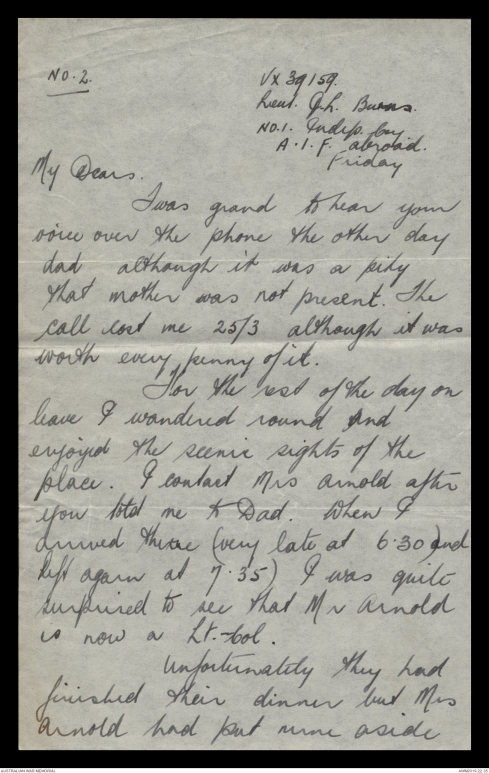 NO. 2.
VX 39159.
Lieut. J.L. Burns.
NO.1. Indep. Coy
A.I.F. abroad.
Friday
My Dears.
Twas grand to hear your
voice over the phone the other day
dad although it was a pity
that mother was not present. The
call cost me 25/3 although it was
worth every penny of it.
For the rest of the day on
leave I wandered round and
enjoyed the scenic sights of the
place. I contact Mrs Arnold after
you told me to Dad. When I
arrived there (very late at 6.30 and
left again at 7.35) I was quite
surprised to see that Mr Arnold
is now a Lt-Col.
Unfortunately they had
finished their dinner but Mrs
Arnold had put mine aside
AUSTRALIAN WAR MEMORIAL